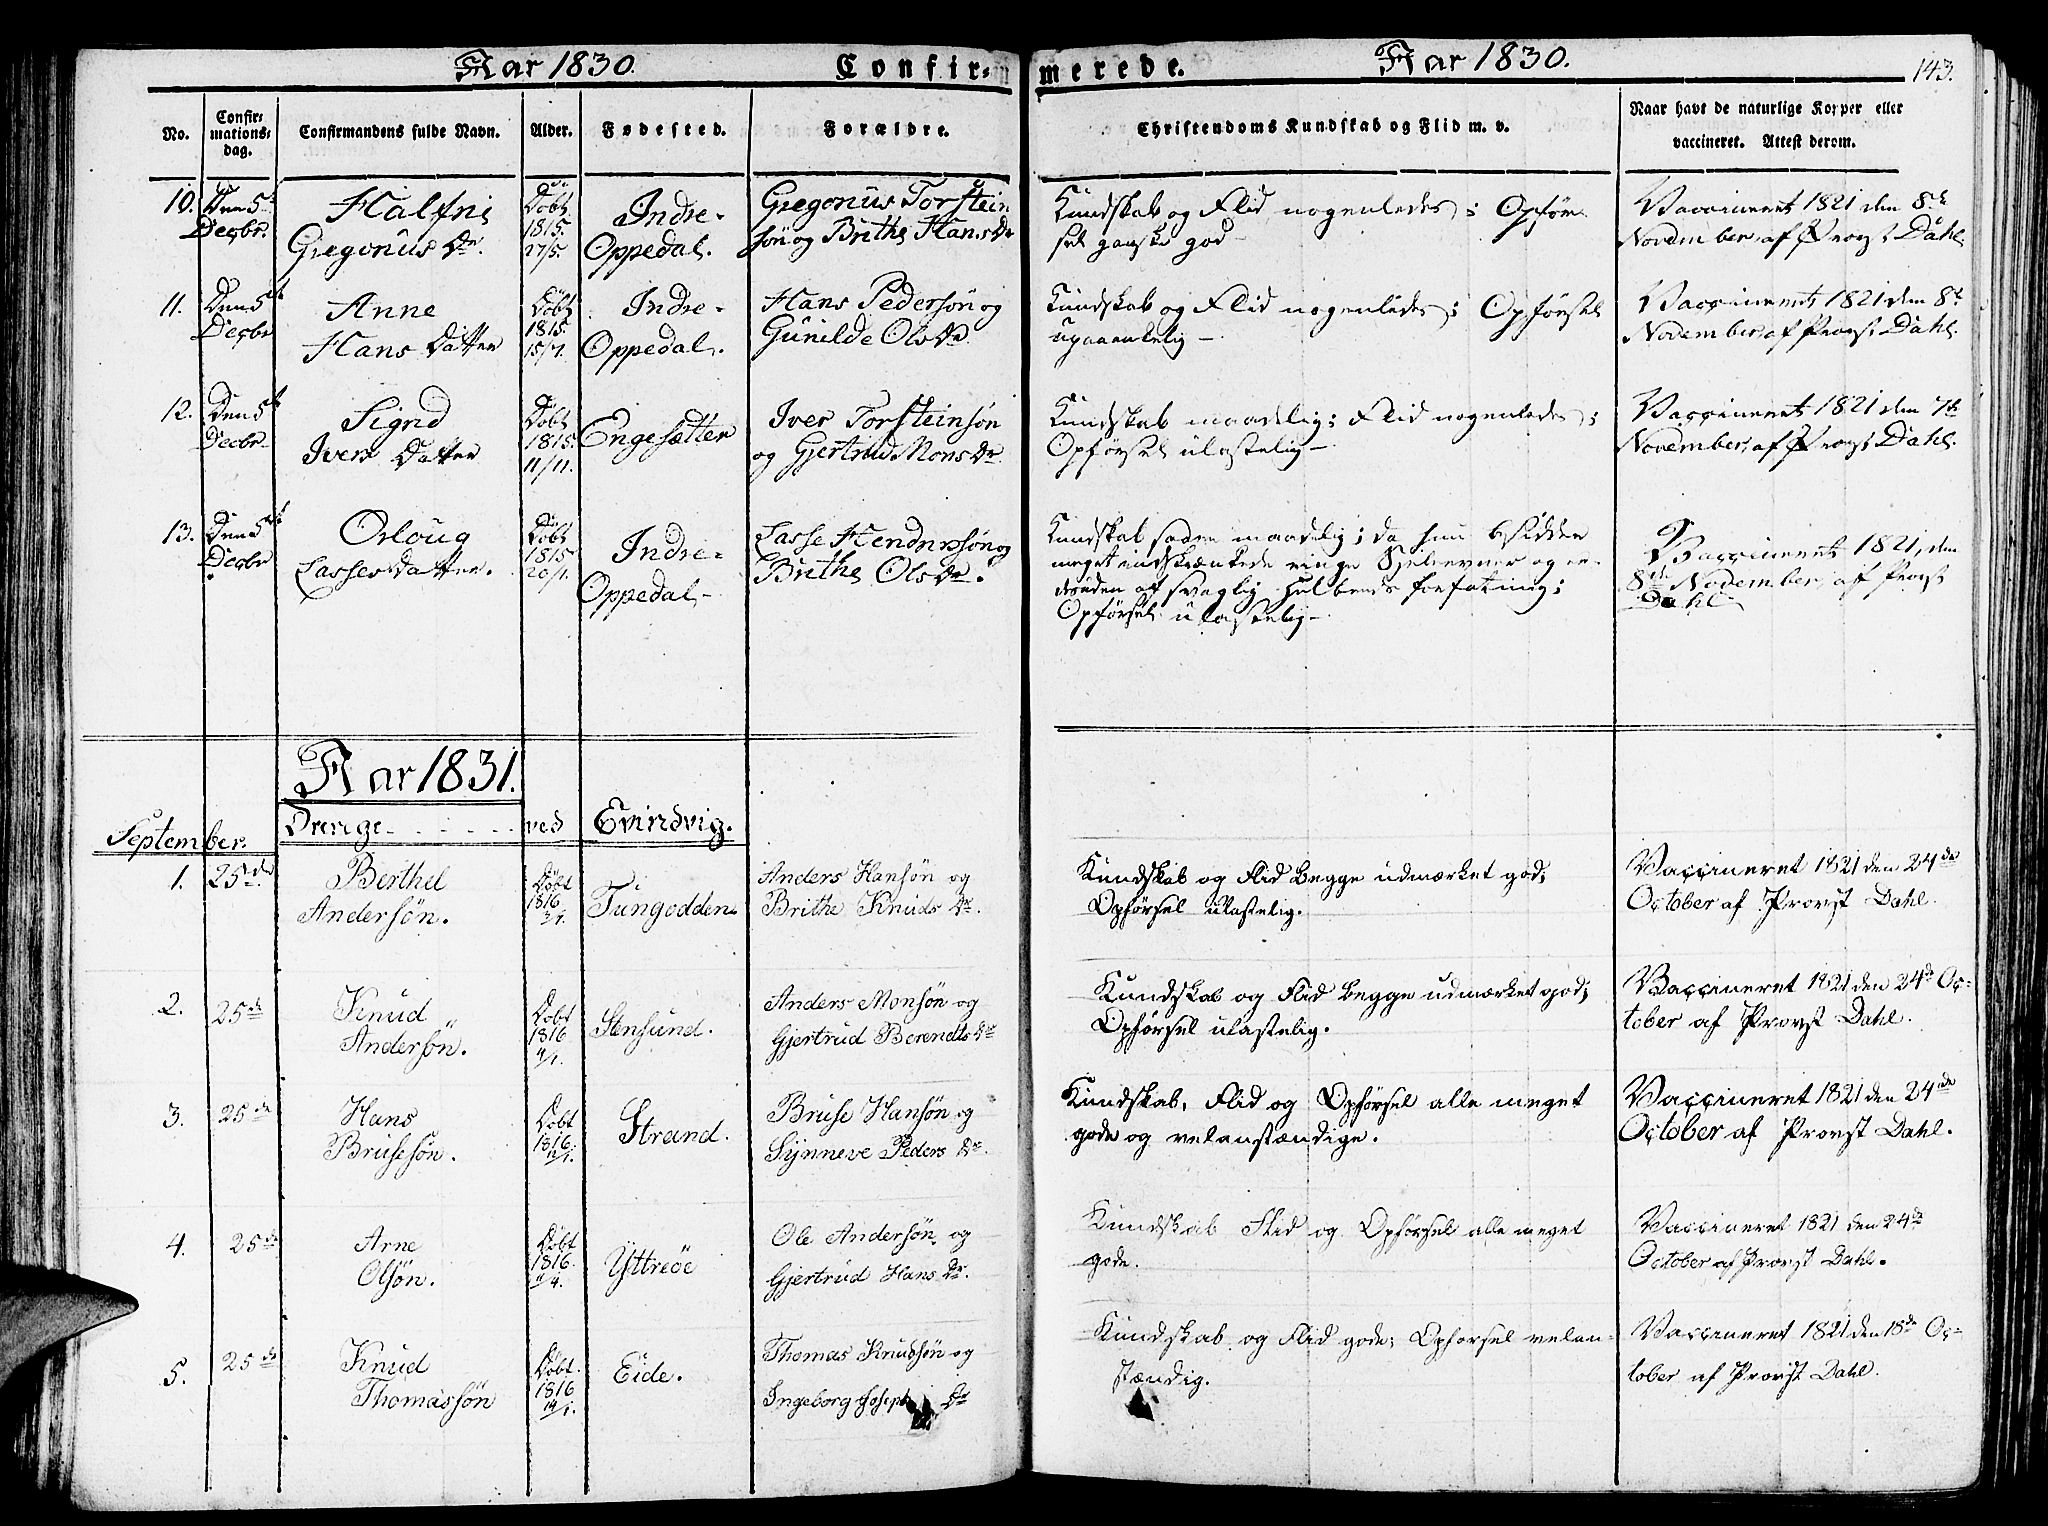 Aar 1830. Confir-
merede. Aar 1830. 143.
No. Confirmations-dag. Confirmandens fulde Navn. Alder. Fødested. Forældre.
Christendoms Kundskab og Flid m. v. Naar havt de naturlige Kopper eller vaccineret. Attest derom.
10. Den 5te Decbr.
Halfni
Gregorius Dr.
Døbt
1815.
27/5.
Indre-
Oppedal.
Gregorius Torstein
søn og Brithe Hans Dr
Kundskab og Flid nogenledes; Opfør-
sel ganske god
Vaccineret 1821 den 8de
November, af Provst Dahl.
11. Den 5te Decbr
Anne
Hans Datter
Døbt
1815.
15/7.
Indre-
Oppedal.
Hans Pedersøn og
Gunilde Ols Dr
Kundskab og Flid nogenledes; Opførsel
upaaankelig
Vaccineret 1821 den 8de
November, af Provst Dahl.
12. Den 5te Decbr
Sigrid
Ivers Datter
Døbt
1815.
11/11.
Engesætter
Iver Torsteinsøn
og Gjertrud Mons Dr
Kundskab maadelig; Flid nogenledes;
Opførsel ulastelig
Vaccineret 1821 den 7de
November, af Provst Dahl.
13. Den 5te Decbr
Orloug
Lasses Datter.
Døbt
1815
20/1.
Indre-
Oppedal
Lasse Hendrissøn og
Brithe Ols Dr.
Kundskab saare maadelig; da hun besidder
meget indskrænkede ringe Sjelsevner og er
desuden af svaglig Helbreds forfatning;
Opførsel ulastelig
Vaccineret 1821, den
8de November, af Provst
Dahl
Aar 1831.
September. Drenge ved Evindvig.
1. 25de.
Berthel
Andersøn.
Døbt
1816.
3/1.
Tungodden
Anders Hansøn og
Brithe Knuds Dr.
Kundskab og Flid begge udmærket god;
Opførsel ulastelig.
Vaccineret 1821 den 24de
October af Provst Dahl.
2. 25de
Knud
Andersøn.
Døbt
1816
4/1.
Stensund.
Anders Monsøn og
Gjertrud Berendts Dr
Kundskab og Flid begge udmærket god;
Opførsel ulastelig.
Vaccineret 1821 den 24de Oc-
tober af Provst Dahl.
3. 25de
Hans
Brusesøn.
Døbt
1816.
14/1.
Strand.
Bruse Hansøn og
Synneve Peders Dr.
Kundskab, Flid og Opførsel alle meget
gode og velanstændige.
Vaccineret 1821 den 24de
October af Provst Dahl.
4. 25de
Arne
Olsøn.
Døbt
1816.
Yttreöe
Ole Andersøn og
Gjertrud Hans Dr.
Kundskab Flid og Opførsel alle meget
gode.
Vaccineret 1821 den 24de
October af Provst Dahl.
5. 25de
Knud
Thomassøn
Døbt.
1816
14/1.
Eide.
Thomas Knudsøn og
Ingeborg Joseph Dr
Kundskab og Flid gode; Opførsel velan-
stændig.
Vaccineret 1821 den 18de Oc-
tober af Provst Dahl.